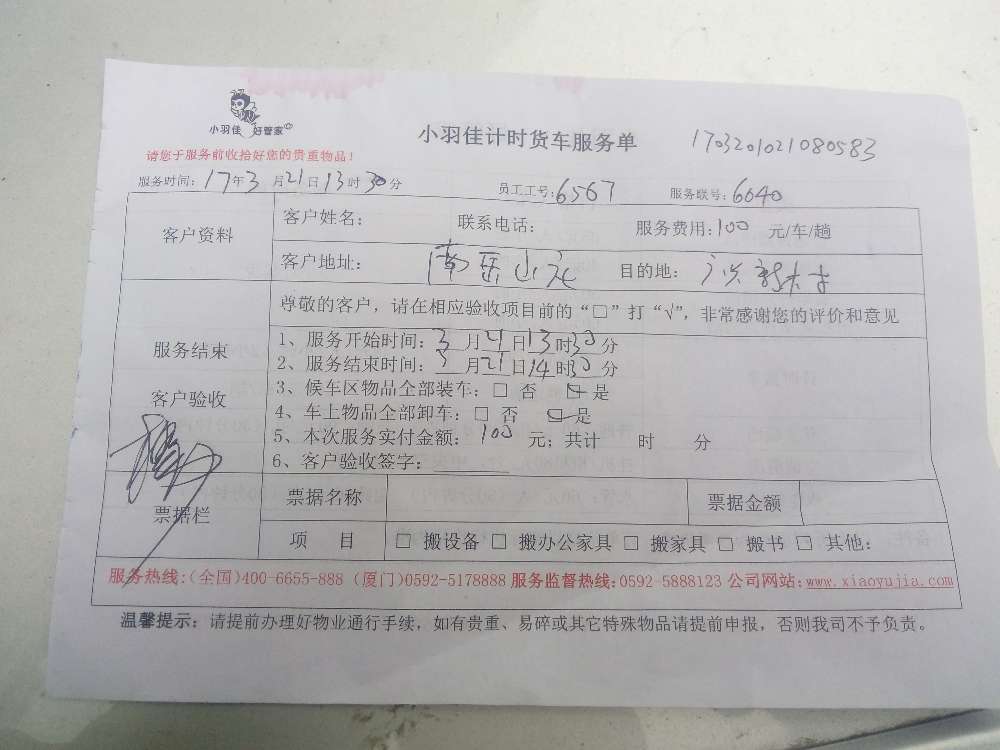 小羽佳 好管家
小羽佳计时货车服务单 1703201021080583
请您于服务前收拾好您的贵重物品！
服务时间：17年3月21日13时30分 员工工号：6567 服务联号：6040
客户资料
客户姓名： 联系电话： 服务费用：100 元/车/趟
客户地址： 南岳山 目的地：
尊敬的客户，请在相应验收项目前的“□”打“√”，非常感谢您的评价和意见
服务结束
客户验收
1、服务开始时间：3月21日13时30分
2、服务结束时间：3月21日14时30分
3、候车区物品全部装车：□ 否 □ 是
4、车上物品全部卸车：□ 否 □ 是
5、本次服务实付金额：100 元；共计 时 分
6、客户验收签字：
票据栏
票据名称 票据金额
项 目 □ 搬设备 □ 搬办公家具 □ 搬家具 □ 搬书 □ 其他：
服务热线：(全国)400-6655-888 (厦门)0592-5178888 服务监督热线：0592-5888123 公司网站：www.xiaoyujia.com
温馨提示：请提前办理好物业通行手续，如有贵重、易碎或其它特殊物品请提前申报，否则我司不予负责。